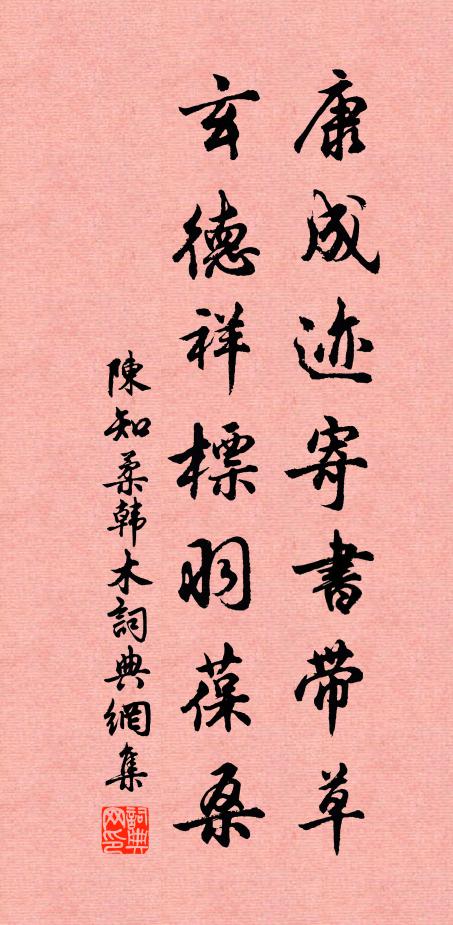 康成迹寄書带草
玄德祥標羽葆桑
陳知柔韩木詞典網集
詞典网印